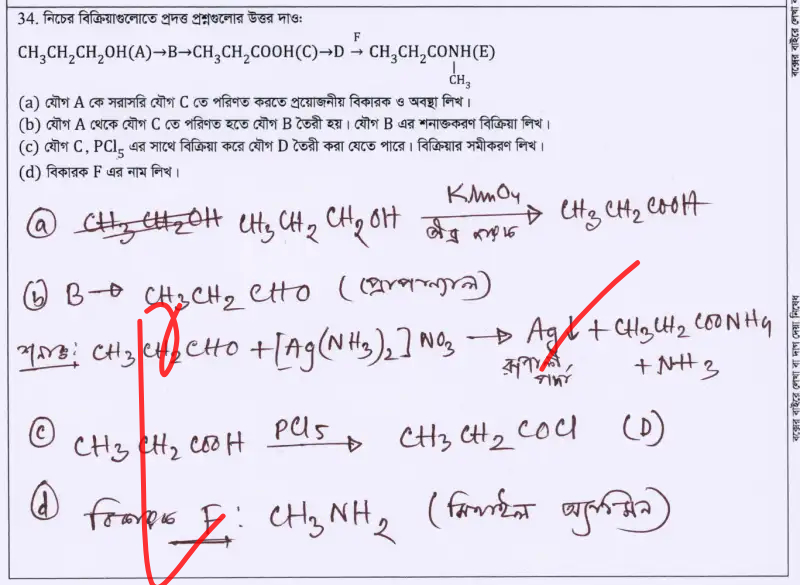 34. নিচের বিক্রিয়াগুলোতে প্রদত্ত প্রশ্নগুলোর উত্তর দাওঃ
F
CH₃CH₂CH₂OH(A)→B→CH₃CH₂COOH(C)→D → CH₃CH₂CONH(E)
|
CH₃
(a) যৌগ A কে সরাসরি যৌগ C তে পরিণত করতে প্রয়োজনীয় বিকারক ও অবস্থা লিখ।
(b) যৌগ A থেকে যৌগ C তে পরিণত হতে যৌগ B তৈরী হয়। যৌগ B এর শনাক্তকরণ বিক্রিয়া লিখ।
(c) যৌগ C, PCl₅ এর সাথে বিক্রিয়া করে যৌগ D তৈরী করা যেতে পারে। বিক্রিয়ার সমীকরণ লিখ।
(d) বিকারক F এর নাম লিখ।
KMnO₄
ⓐ CH₃CH₂OH CH₃CH₂CH₂OH → CH₃CH₂COOH
তীব্র
ⓑ B → CH₃CH₂CHO (প্রোপান্যাল)
শনাক্ত: CH₃CH₂CHO + [Ag(NH₃)₂]NO₃ → Ag↓ + CH₃CH₂COONH₄
+ NH₃
ⓒ CH₃CH₂COOH PCl₅ → CH₃CH₂COCl (D)
ⓓ বিকারক F: CH₃NH₂ (মিথাইল অ্যামিন)
বক্সের বাইরে লেখা বা দাগ দেয়া নিষেধ
বক্সের বাইরে লেখা